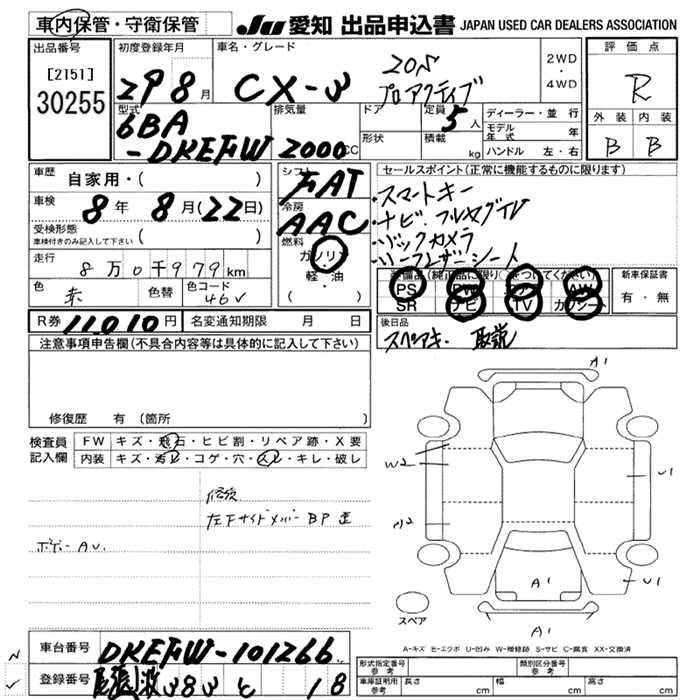 車内保管・守衛保管 JU 愛知 出品申込書 JAPAN USED CAR DEALERS ASSOCIATION
出品番号 初度登録年月 車名・グレード 2WD・4WD 評価点
[2151] 30255
29 8月 CX-3 20S プロアクティブ R
型式 排気量 ドア 定員 ディーラー・並行 外装 内装
6BA 5人 モデル年式 年 B B
-DKEFW 2000CC 形状 積載 kg ハンドル 左・右
車歴 自家用・( ) シフト FAT セールスポイント(正常に機能するものに限ります)
車検 8年 8月(22日) 冷房 AAC ・スマートキー
受検形態 車検付きのみ記入して下さい ( ) 燃料 ・ナビ フルセグTV
走行 8万0千979km ガソリン ・バックカメラ
軽・油
( )
色 赤 色替 色コード 46V
装備品(純正品に限り○をつけてください) 新車保証書
PS PW AW 有・無
SR ナビ TV カワシート
R券 11,010円 名変通知期限 月 日 後日品
スペアキー 取説
注意事項申告欄(不具合内容等は具体的に記入して下さい)
修復歴 有(箇所
検査員記入欄 FW キズ・飛石・ヒビ割・リペア跡・X要
内装 キズ・汚レ・コゲ・穴・スレ・キレ・破レ
修復
左下サイドメンバーBP歪
ボデーAU.
A1
W2 U1
U1
A1
スペア
A1
A-キズ E-エクボ U-凹み W-補修跡 S-サビ C-腐食 XX-交換済
車台番号 DKEFW-101266
登録番号 383 と 18
形式指定番号 参考 類別区分番号 参考
車庫証明用 参考 長さ cm 幅 cm 高さ cm